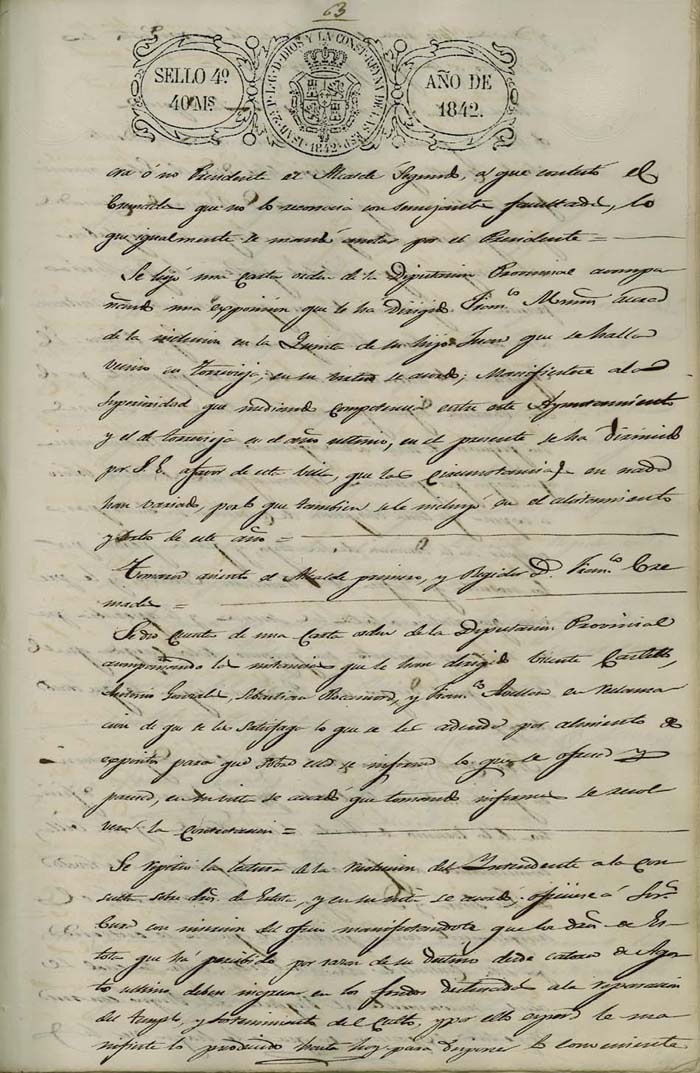 63
SELLO 4º
40 Ms
ISAB. 2ª P. L. G. D. DIOS Y LA CONST. REYNA DE LAS ESP.
1842
AÑO DE
1842.
era ó no Presidente el Alcalde Segundo, a que contestó el
que no lo reconocia con semejante facultad, lo
que igualmente se mandó anotar por el Presidente =
Se leyó una Carta orden de la Diputacion Provincial acompa
ñando una exposicion que le ha dirigido Franco
de la inclusion en la Quinta de su hijo Juan que se halla
vecino en Torrevieja; en su vista se acordó; Manifiestese a la
Superioridad que mediando competencia entre este Ayuntamiento
y el de Torrevieja en el año ultimo, en el presente se ha dirimido
por S. E. a favor de esta Villa, que las Circunstancias en nada
han variado, por lo que tambien se le incluyó en el alistamiento
y de este año =
Tomaron asiento el Alcalde primero, y Regidor D. Franco
=
Se dio Cuenta de una Carta orden de la Diputacion Provincial
acompañando la instancia que le han dirigido Vicente
Antonio Gonzalez, Sebastian Rocamora, y Franco en reclama
cion de que se les satisfaga lo que se les adeuda por alimento de
expositos para que sobre ello se informe lo que se ofrezca y
parezca, en su vista se acordó que tomando informes se resol
verá la contestacion =
Se repitió la lectura de la resolucion del Intendente a la con
sulta sobre dros. de Estola, y en su vista se acordó; oficiese á Sor.
Cura con insercion del oficio manifestandole que los dros. de Es
tola que há percibido por razon de su destino desde catorce de Agos
to ultimo deben ingresar en los fondos destinados a la reparacion
del templo, y sostenimiento del Culto, y por ello espera le ma
nifieste lo producido hasta hoy para disponer lo conveniente